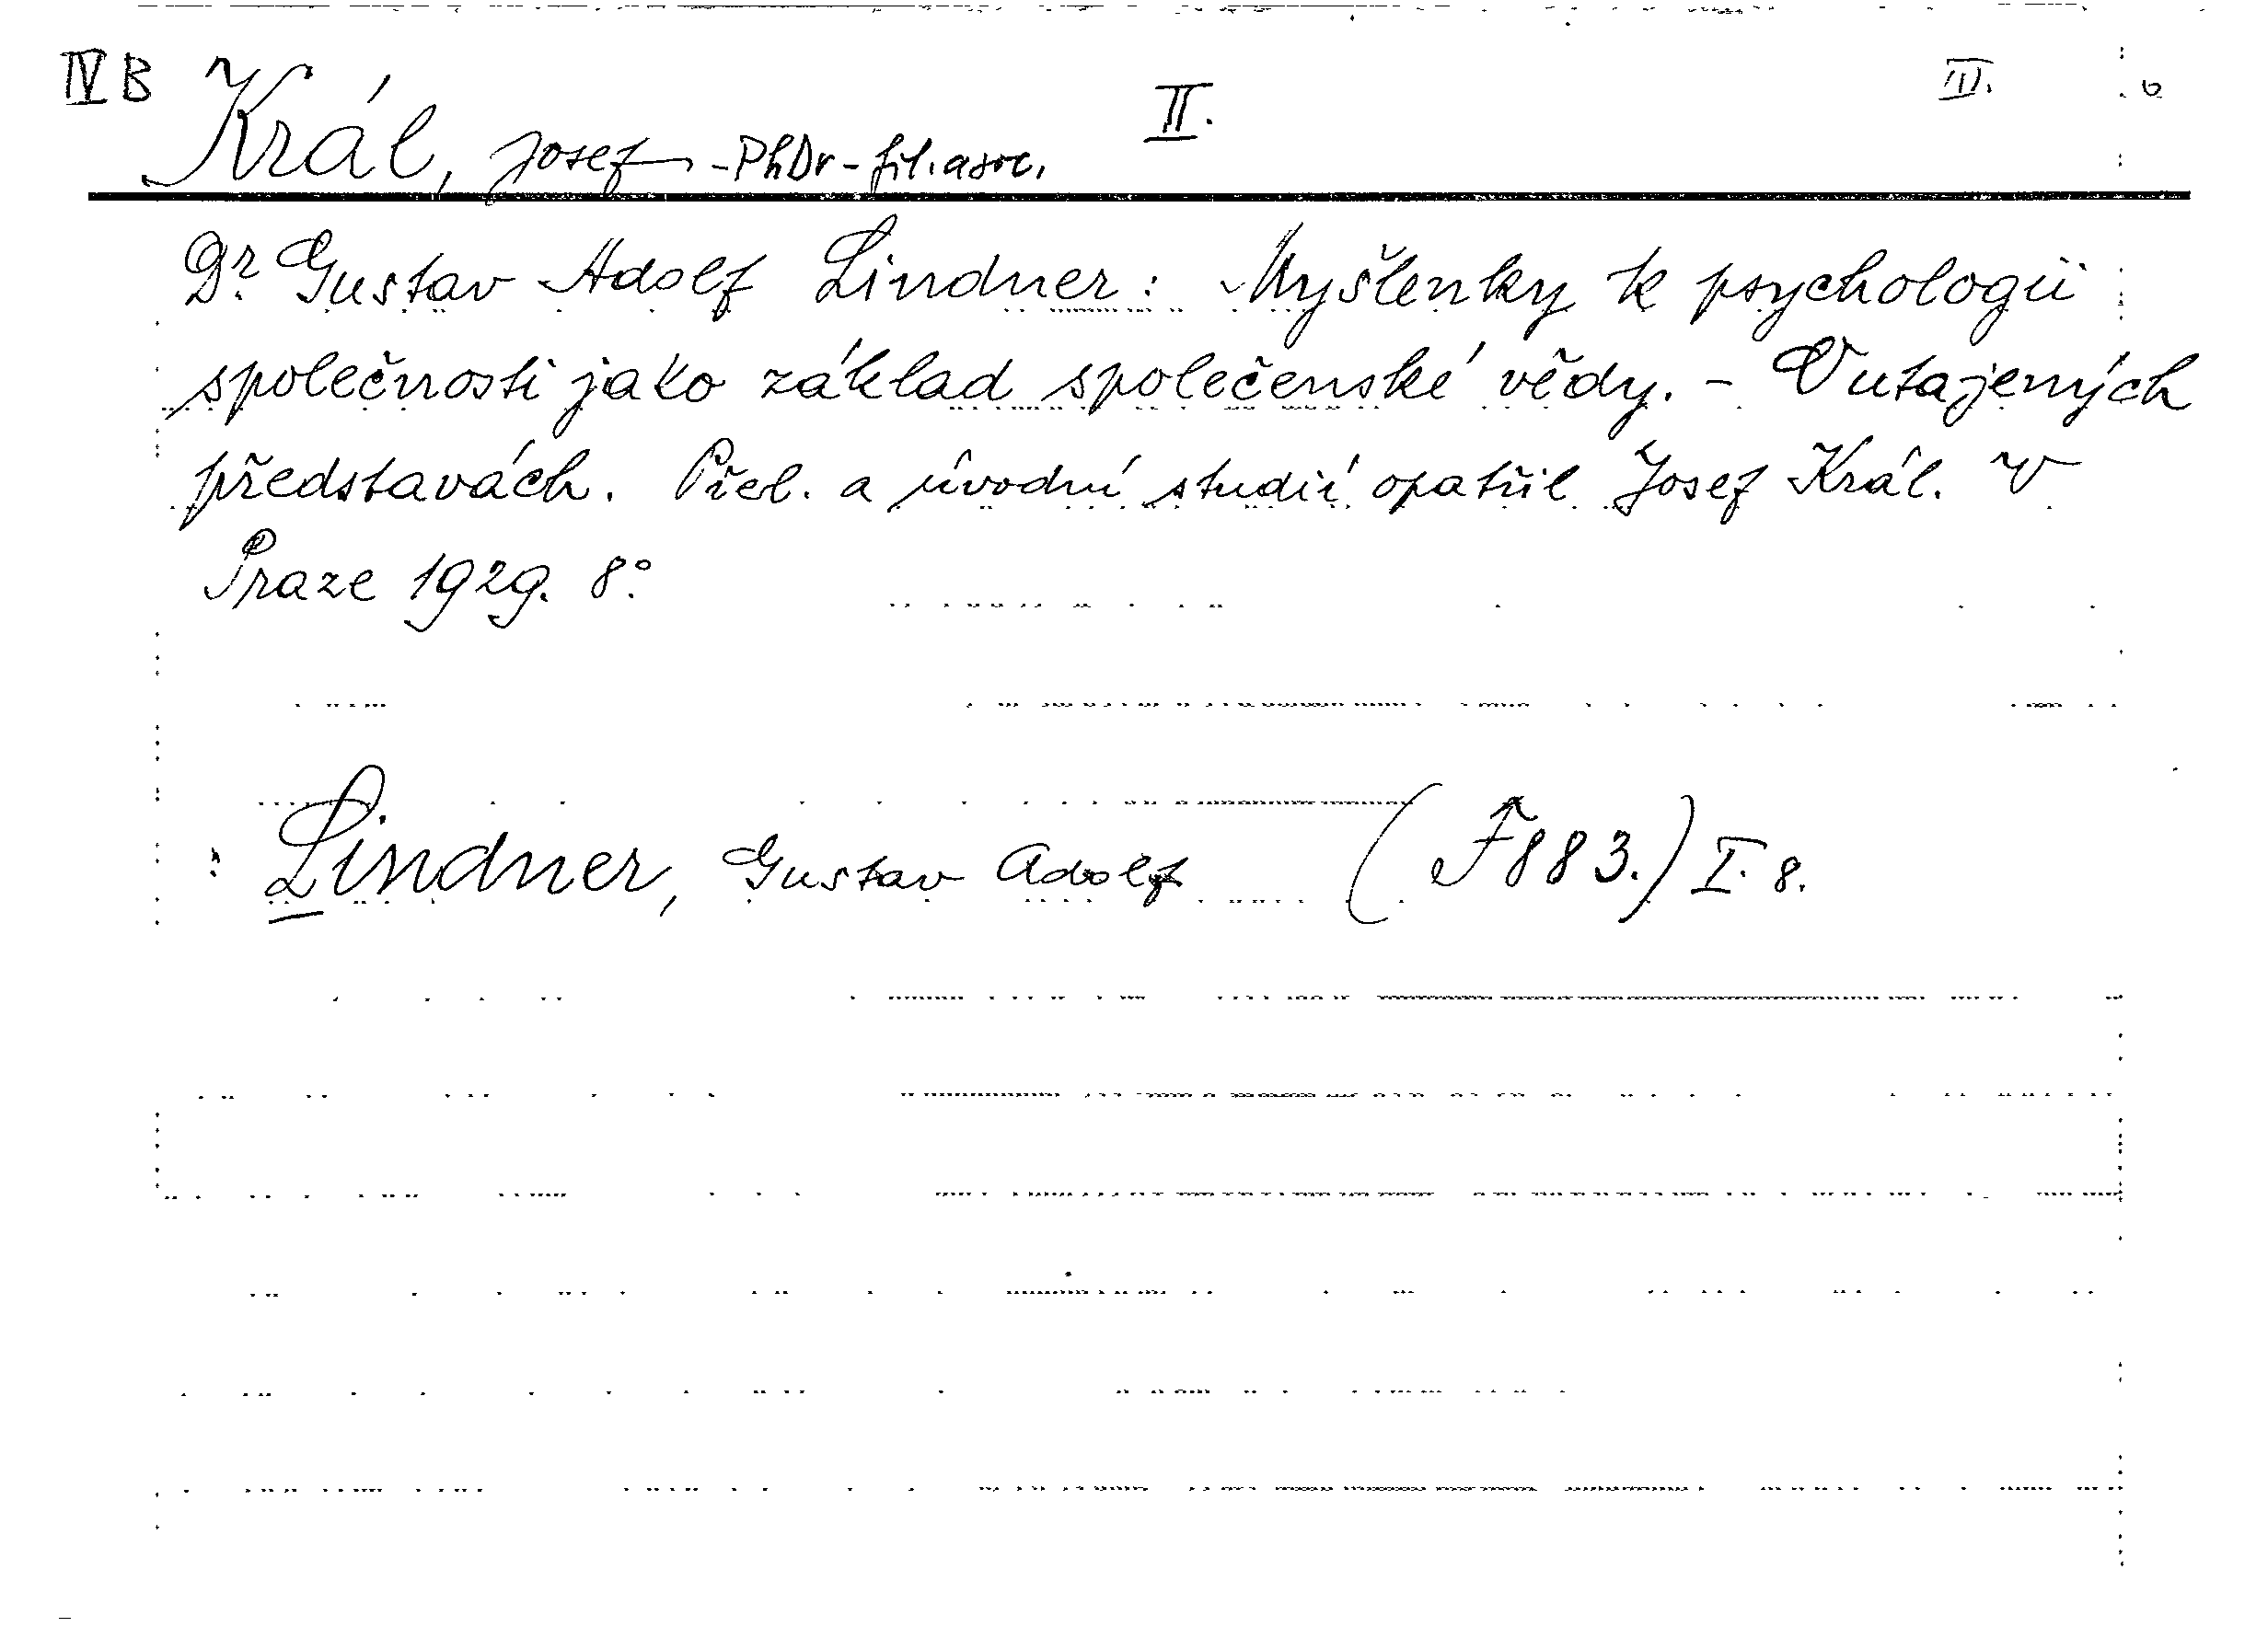 IV B Král, Josef - PhDr - fil. a soc. II. III. 6
Dr. Gustav Adolf Lindner: Myšlenky k psychologii
společnosti jako základ společenské vědy. - O utajených
představách. Přel. a úvodní studií opatřil Josef Král. V
Praze 1929. 8°.
: Lindner, Gustav Adolf (F 883.) I. 8.